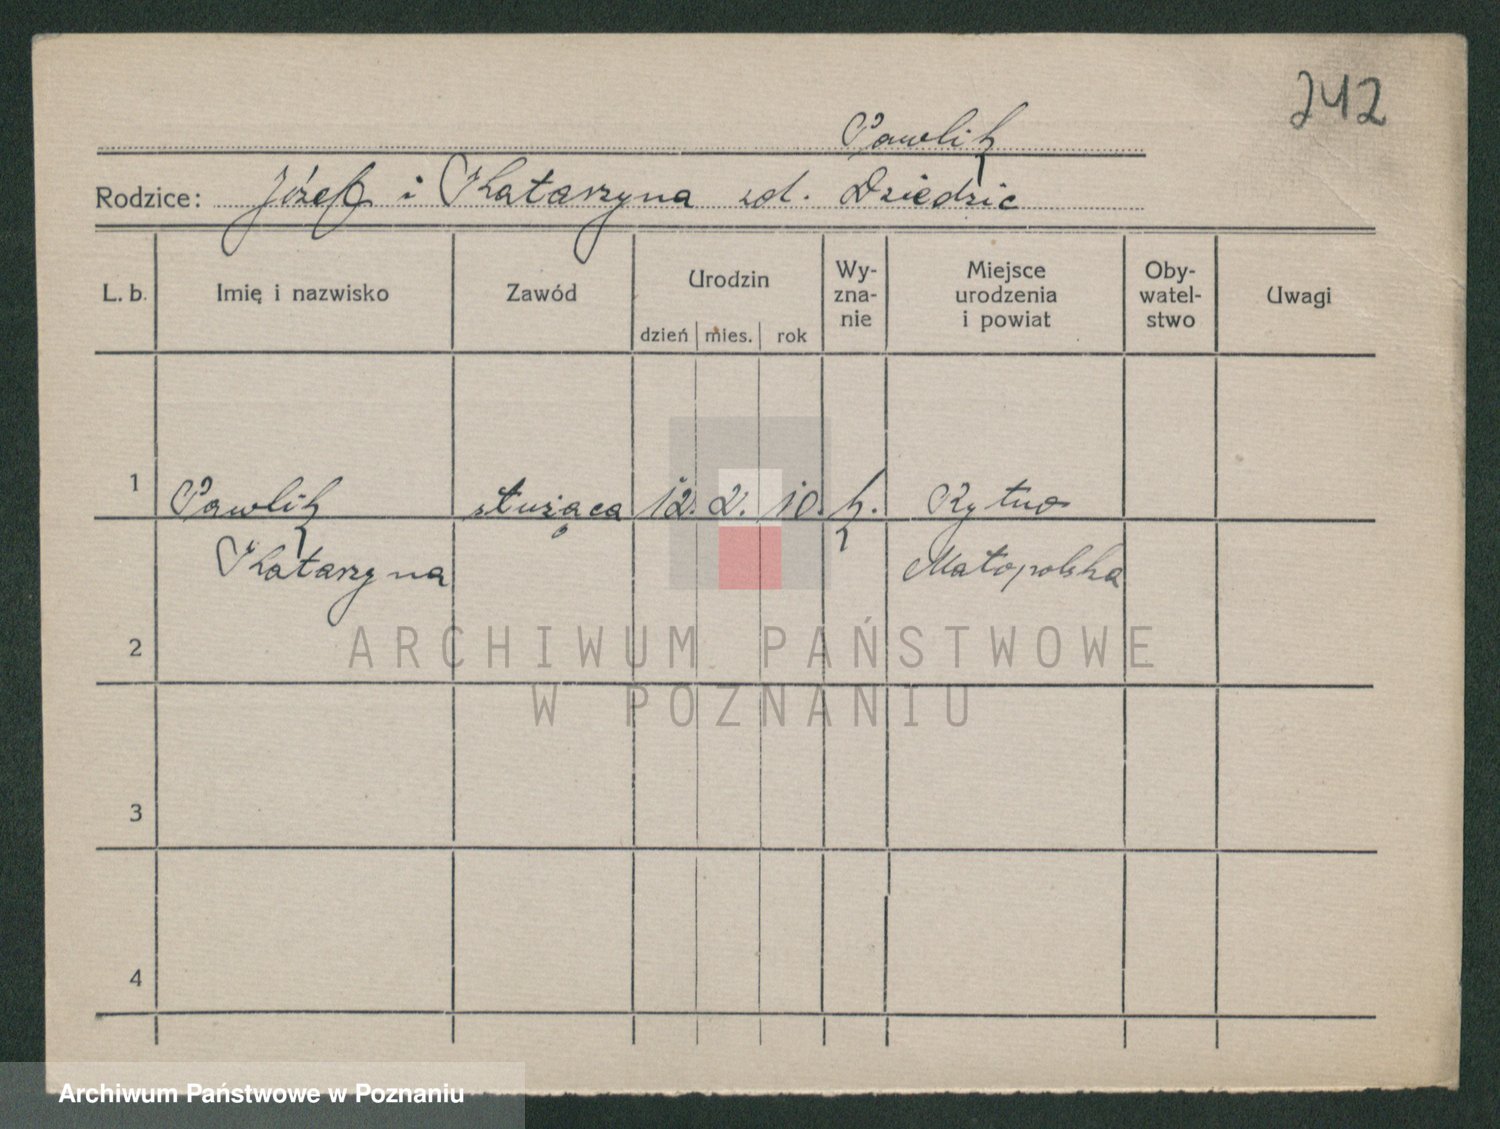 242
Pawlik
Rodzice: Józef i Katarzyna zd. Dziedzic
L. b. Imię i nazwisko Zawód Urodzin Wy-zna-nie Miejsce urodzenia i powiat Oby-watel-stwo Uwagi
dzień mies. rok
1 Pawlik służąca 12. 2. 10. k. Rytno
Katarzyna Małopolska
2
ARCHIWUM PAŃSTWOWE
W POZNANIU
3
4
Archiwum Państwowe w Poznaniu